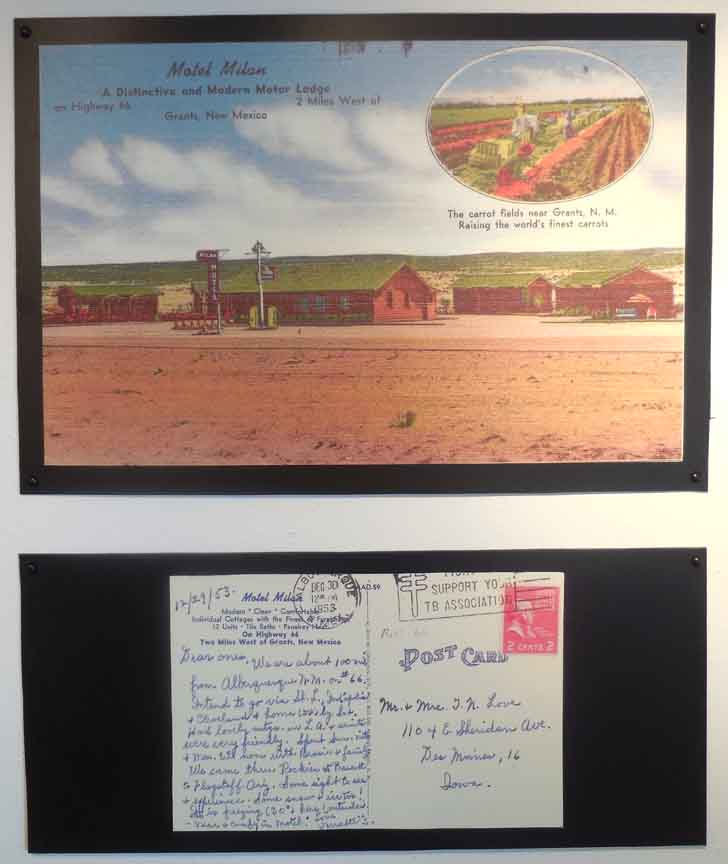 Motel Milan
A Distinctive and Modern Motor Lodge
on Highway 66 2 Miles West of
Grants, New Mexico
The carrot fields near Grants, N. M.
Raising the world's finest carrots
MILAN
MOTEL
12/29/53.
Motel Milan
Modern • Clean • Comfortable
Individual Cottages with the Finest of Furnishings
12 Units • Tile Baths • Panelray Heat
On Highway 66
Two Miles West of Grants, New Mexico
ALBUQUERQUE
DEC 30
1953
SUPPORT YOUR
TB ASSOCIATION
2 CENTS 2
POST CARD
Dear ones, We are about 100 mi
from Alberquerque N.M. on #66.
Intend to go via St. L., Ind'polis
& Cleveland & home
Had lovely in L.A. &
were very friendly. Spent Sun. nite
& Mon. till noon with & family
We came thru
to Flagstaff Ariz. Some sight to see
& experience. Some snow & ice too!
It is freezing (20°) here outside.
in motel. Love
Mr. & Mrs. T. N. Love
1104 E Sheridan Ave.
Des Moines, 16
Iowa.